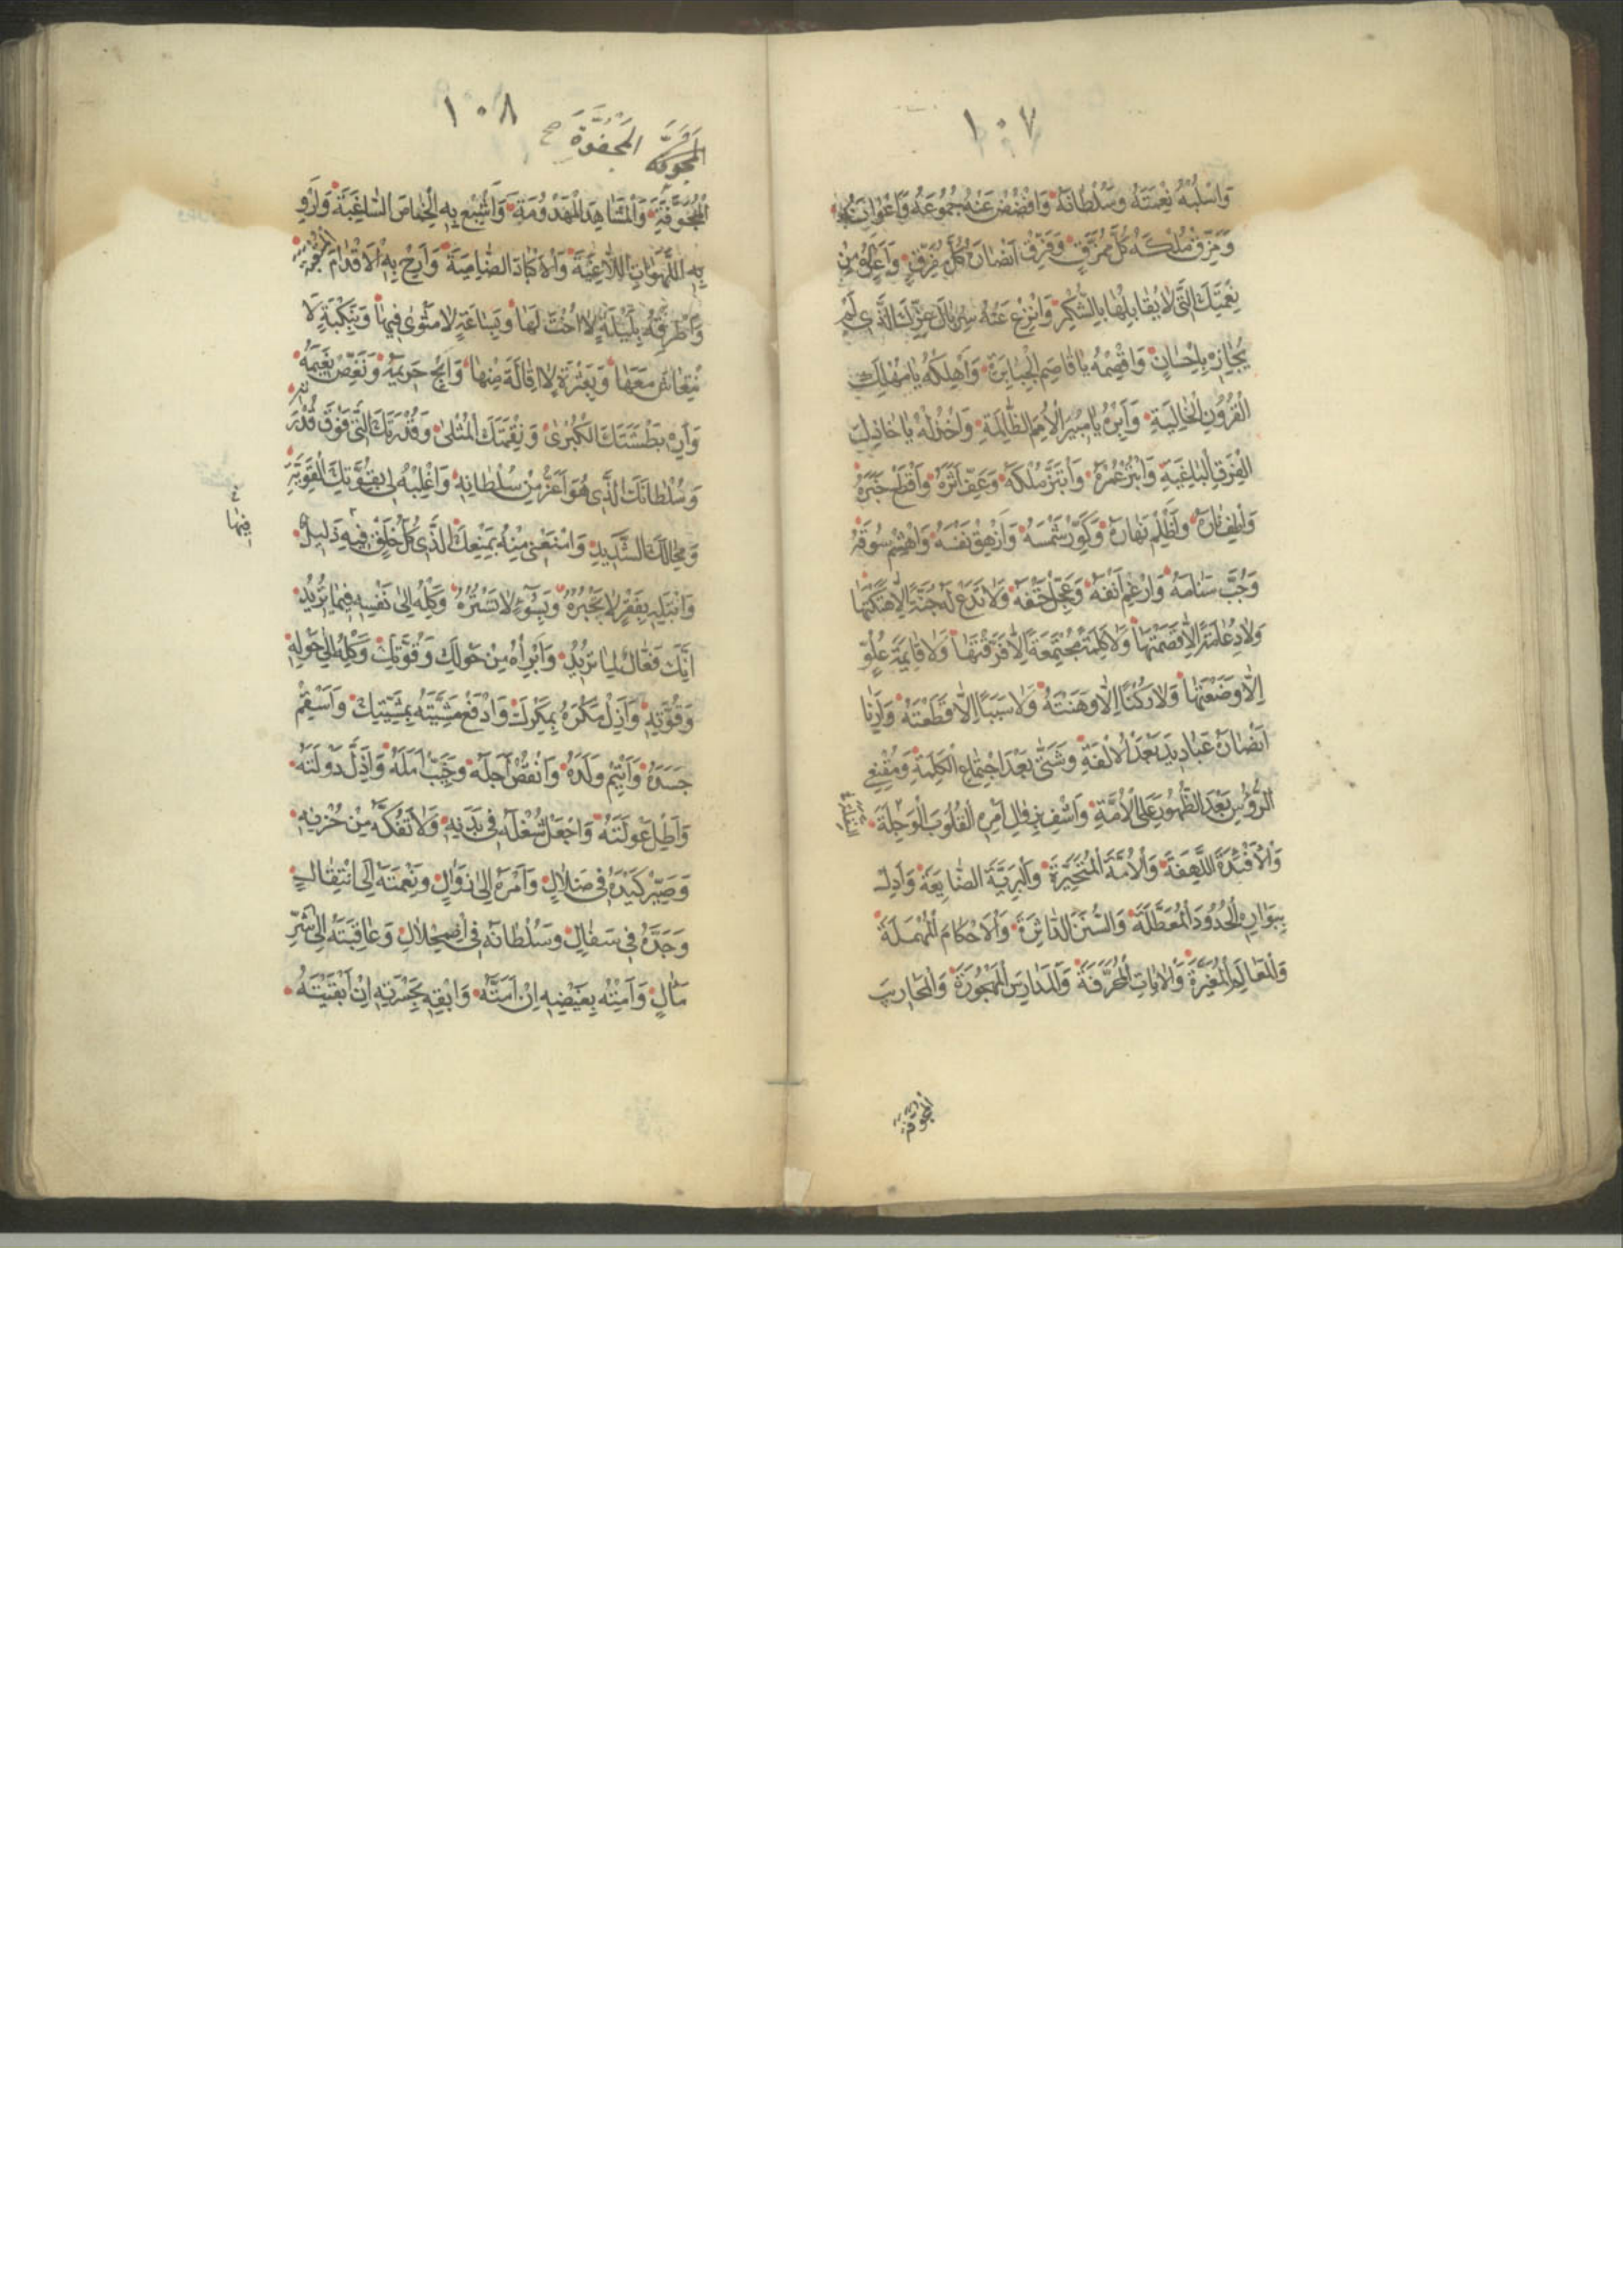 ١٠٧
وَاسْلُبْهُ نِعْمَتَهُ وَسُلْطَانَهُ وَافْضُضْ عَنْهُ جُمُوعَهُ وَاَعْوَانَهُ
وَمَزِّقْ مُلْكَهُ كُلَّ مُمَزَّقٍ وَفَرِّقْ اَنْصَارَهُ كُلَّ مُفَرَّقٍ وَاَعِرْهُ مِنْ
نِعْمَتِكَ الَّتِي لَا يُقَابِلُهَا بِالشُّكْرِ وَانْزِعْ عَنْهُ سِرْبَالَ عِزِّكَ الَّذِي لَمْ
يُجَازِهِ بِاِحْسَانٍ وَاقْصِمْهُ يَا قَاصِمَ الْجَبَابِرَةِ وَاَهْلِكْهُ يَا مُهْلِكَ
الْقُرُونِ الْخَالِيَةِ وَاَبِرْهُ يَا مُبِيرَ الْاُمَمِ الظَّالِمَةِ وَاخْذُلْهُ يَا خَاذِلَ
الْفِرَقِ الْبَاغِيَةِ وَابْتُرْ عُمْرَهُ وَابْتَزَّ مُلْكَهُ وَعَفِّ اَثَرَهُ وَاقْطَعْ خَبَرَهُ
وَاَطْفِ نَارَهُ وَاَظْلِمْ نَهَارَهُ وَكَوِّرْ شَمْسَهُ وَاَزْهِقْ نَفْسَهُ وَاهْشِمْ سُوقَهُ
وَجُبَّ سَنَامَهُ وَاَرْغِمْ اَنْفَهُ وَعَجِّلْ حَتْفَهُ وَلَا تَدَعْ لَهُ جُنَّةً اِلَّا هَتَكْتَهَا
وَلَا دِعَامَةً اِلَّا قَصَمْتَهَا وَلَا كَلِمَةً مُجْتَمِعَةً اِلَّا فَرَّقْتَهَا وَلَا قَائِمَةَ عُلُوٍّ
اِلَّا وَضَعْتَهَا وَلَا رُكْنًا اِلَّا وَهَنْتَهُ وَلَا سَبَبًا اِلَّا قَطَعْتَهُ وَاَرِنَا
اَنْصَارَهُ عَبَادِيدَ بَعْدَ الْاُلْفَةِ وَشَتَّى بَعْدَ اجْتِمَاعِ الْكَلِمَةِ وَمُقْنِعِي
الرُّؤُسِ بَعْدَ الظُّهُورِ عَلَى الْاُمَّةِ وَاشْفِ بِزَوَالِ اَمْرِهِ الْقُلُوبَ الْوَجِلَةَ
وَالْاَفْئِدَةَ اللَّهِفَةَ وَالْاُمَّةَ الْمُتَحَيِّرَةَ وَالْبَرِيَّةَ الضَّايِعَةَ وَاَدِلْ
بِبَوَارِهِ الْحُدُودَ الْمُعَطَّلَةَ وَالسُّنَنَ الدَّاثِرَةَ وَالْاَحْكَامَ الْمُهْمَلَةَ
وَالْمَعَالِمَ الْمُغَيَّرَةَ وَالْاٰيَاتِ الْمُحَرَّفَةَ وَالْمَدَارِسَ الْمَهْجُورَةَ وَالْمَحَارِيبَ
الْمَجْفُوَّةَ
١٠٨
الْمَجْفُوَّةَ صح
الْمَجْفُوَّةَ وَالْمَشَاهِدَ الْمَهْدُومَةَ وَاَشْبِعْ بِهِ الْخِمَاصَ السَّاغِبَةَ وَاَرْوِ
بِهِ اللَّهَوَاتِ اللَّاغِبَةَ وَالْاَكْبَادَ الظَّامِيَةَ وَاَرِحْ بِهِ الْاَقْدَامَ الْمُتْعَبَةَ
وَاطْرُقْهُ بِلَيْلَةٍ لَا اُخْتَ لَهَا وَبِسَاعَةٍ لَا مَثْوٰى فِيهَا وَبِنَكْبَةٍ لَا
انْتِعَاشَ مَعَهَا وَبِعَثْرَةٍ لَا اِقَالَةَ مِنْهَا وَاَبِحْ حَرِيمَهُ وَنَغِّصْ نَعِيمَهُ
وَاَرِهِ بَطْشَتَكَ الْكُبْرٰى وَنِقْمَتَكَ الْمُثْلٰى وَقُدْرَتَكَ الَّتِي فَوْقَ قُدْرَتِهِ
وَسُلْطَانَكَ الَّذِي هُوَ اَعَزُّ مِنْ سُلْطَانِهِ وَاغْلِبْهُ لِي بِقُوَّتِكَ الْقَوِيَّةِ
وَمِحَالِكَ الشَّدِيدِ وَامْنَعْنِي مِنْهُ بِمَنْعِكَ الَّذِي كُلُّ خَلْقٍ فِيهِ ذَلِيلٌ
فيها
وَابْتَلِهِ بِفَقْرٍ لَا تَجْبُرُهُ وَبِسُوءٍ لَا تَسْتُرُهُ وَكِلْهُ اِلٰى نَفْسِهِ فِيمَا يُرِيدُ
اِنَّكَ فَعَّالٌ لِمَا تُرِيدُ وَاَبْرِأْهُ مِنْ حَوْلِكَ وَقُوَّتِكَ وَكِلْهُ اِلٰى حَوْلِهِ
وَقُوَّتِهِ وَاَزِلْ مَكْرَهُ بِمَكْرِكَ وَادْفَعْ مَشِيَّتَهُ بِمَشِيَّتِكَ وَاَسْقِمْ
جَسَدَهُ وَاَيْتِمْ وَلَدَهُ وَانْقُصْ اَجَلَهُ وَخَيِّبْ اَمَلَهُ وَاَدِلْ دَوْلَتَهُ
وَاَطِلْ عَوْلَتَهُ وَاجْعَلْ شُغْلَهُ فِي بَدَنِهِ وَلَا تَفُكَّهُ مِنْ حُزْنِهِ
وَصَيِّرْ كَيْدَهُ فِي ضَلَالٍ وَاَمْرَهُ اِلٰى زَوَالٍ وَنِعْمَتَهُ اِلَى انْتِقَالٍ
وَجَدَّهُ فِي سَفَالٍ وَسُلْطَانَهُ فِي اضْمِحْلَالٍ وَعَاقِبَتَهُ اِلٰى شَرِّ
مَاٰلٍ وَاَمِتْهُ بِغَيْظِهِ اِنْ اَمَتَّهُ وَاَبْقِهِ بِحَسْرَتِهِ اِنْ اَبْقَيْتَهُ